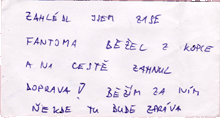 ZAHLÉDL JSEM ZASE
FANTOMA BĚŽEL Z KOPCE
A NA CESTĚ ZAHNUL
DOPRAVA! BĚŽÍM ZA NÍM
NĚKDE TU BUDE ZPRÁVA